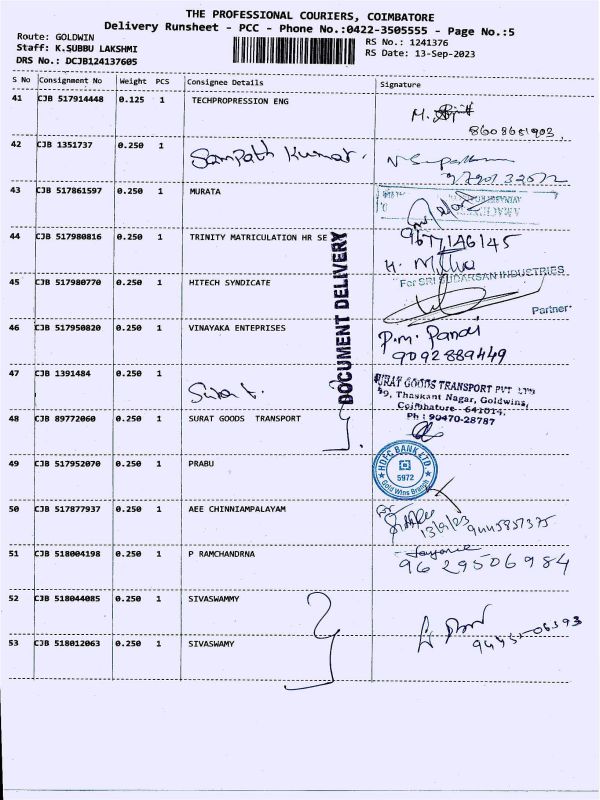 THE PROFESSIONAL COURIERS, COIMBATORE
Delivery Runsheet - PCC - Phone No.:0422-3505555 - Page No.:5
Route: GOLDWIN
Staff: K.SUBBU LAKSHMI
DRS No.: DCJB124137605
RS No.: 1241376
RS Date: 13-Sep-2023
S No Consignment No Weight PCS Consignee Details Signature
41 CJB 517914448 0.125 1 TECHPROPRESSION ENG
8608651903
42 CJB 1351737 0.250 1 Sampath Kumar.
43 CJB 517861597 0.250 1 MURATA
9677146145
44 CJB 517980816 0.250 1 TRINITY MATRICULATION HR SE
DOCUMENT DELIVERY
45 CJB 517980770 0.250 1 HITECH SYNDICATE
For SRI SUDARSAN INDUSTRIES
Partner
46 CJB 517950820 0.250 1 VINAYAKA ENTEPRISES
P.M. Pandi
9092889449
47 CJB 1391484 0.250 1
SURAT GOODS TRANSPORT PVT LTD
49, Thaskant Nagar, Goldwins,
Coimbature - 641014.
Ph : 90470-28787
48 CJB 89772060 0.250 1 SURAT GOODS TRANSPORT
49 CJB 517952070 0.250 1 PRABU
HDFC BANK LTD
5972
Gold Wins Branch
50 CJB 517877937 0.250 1 AEE CHINNIAMPALAYAM
13/9/23
51 CJB 518004198 0.250 1 P RAMCHANDRNA
9629506984
52 CJB 518044085 0.250 1 SIVASWAMMY
53 CJB 518012063 0.250 1 SIVASWAMY